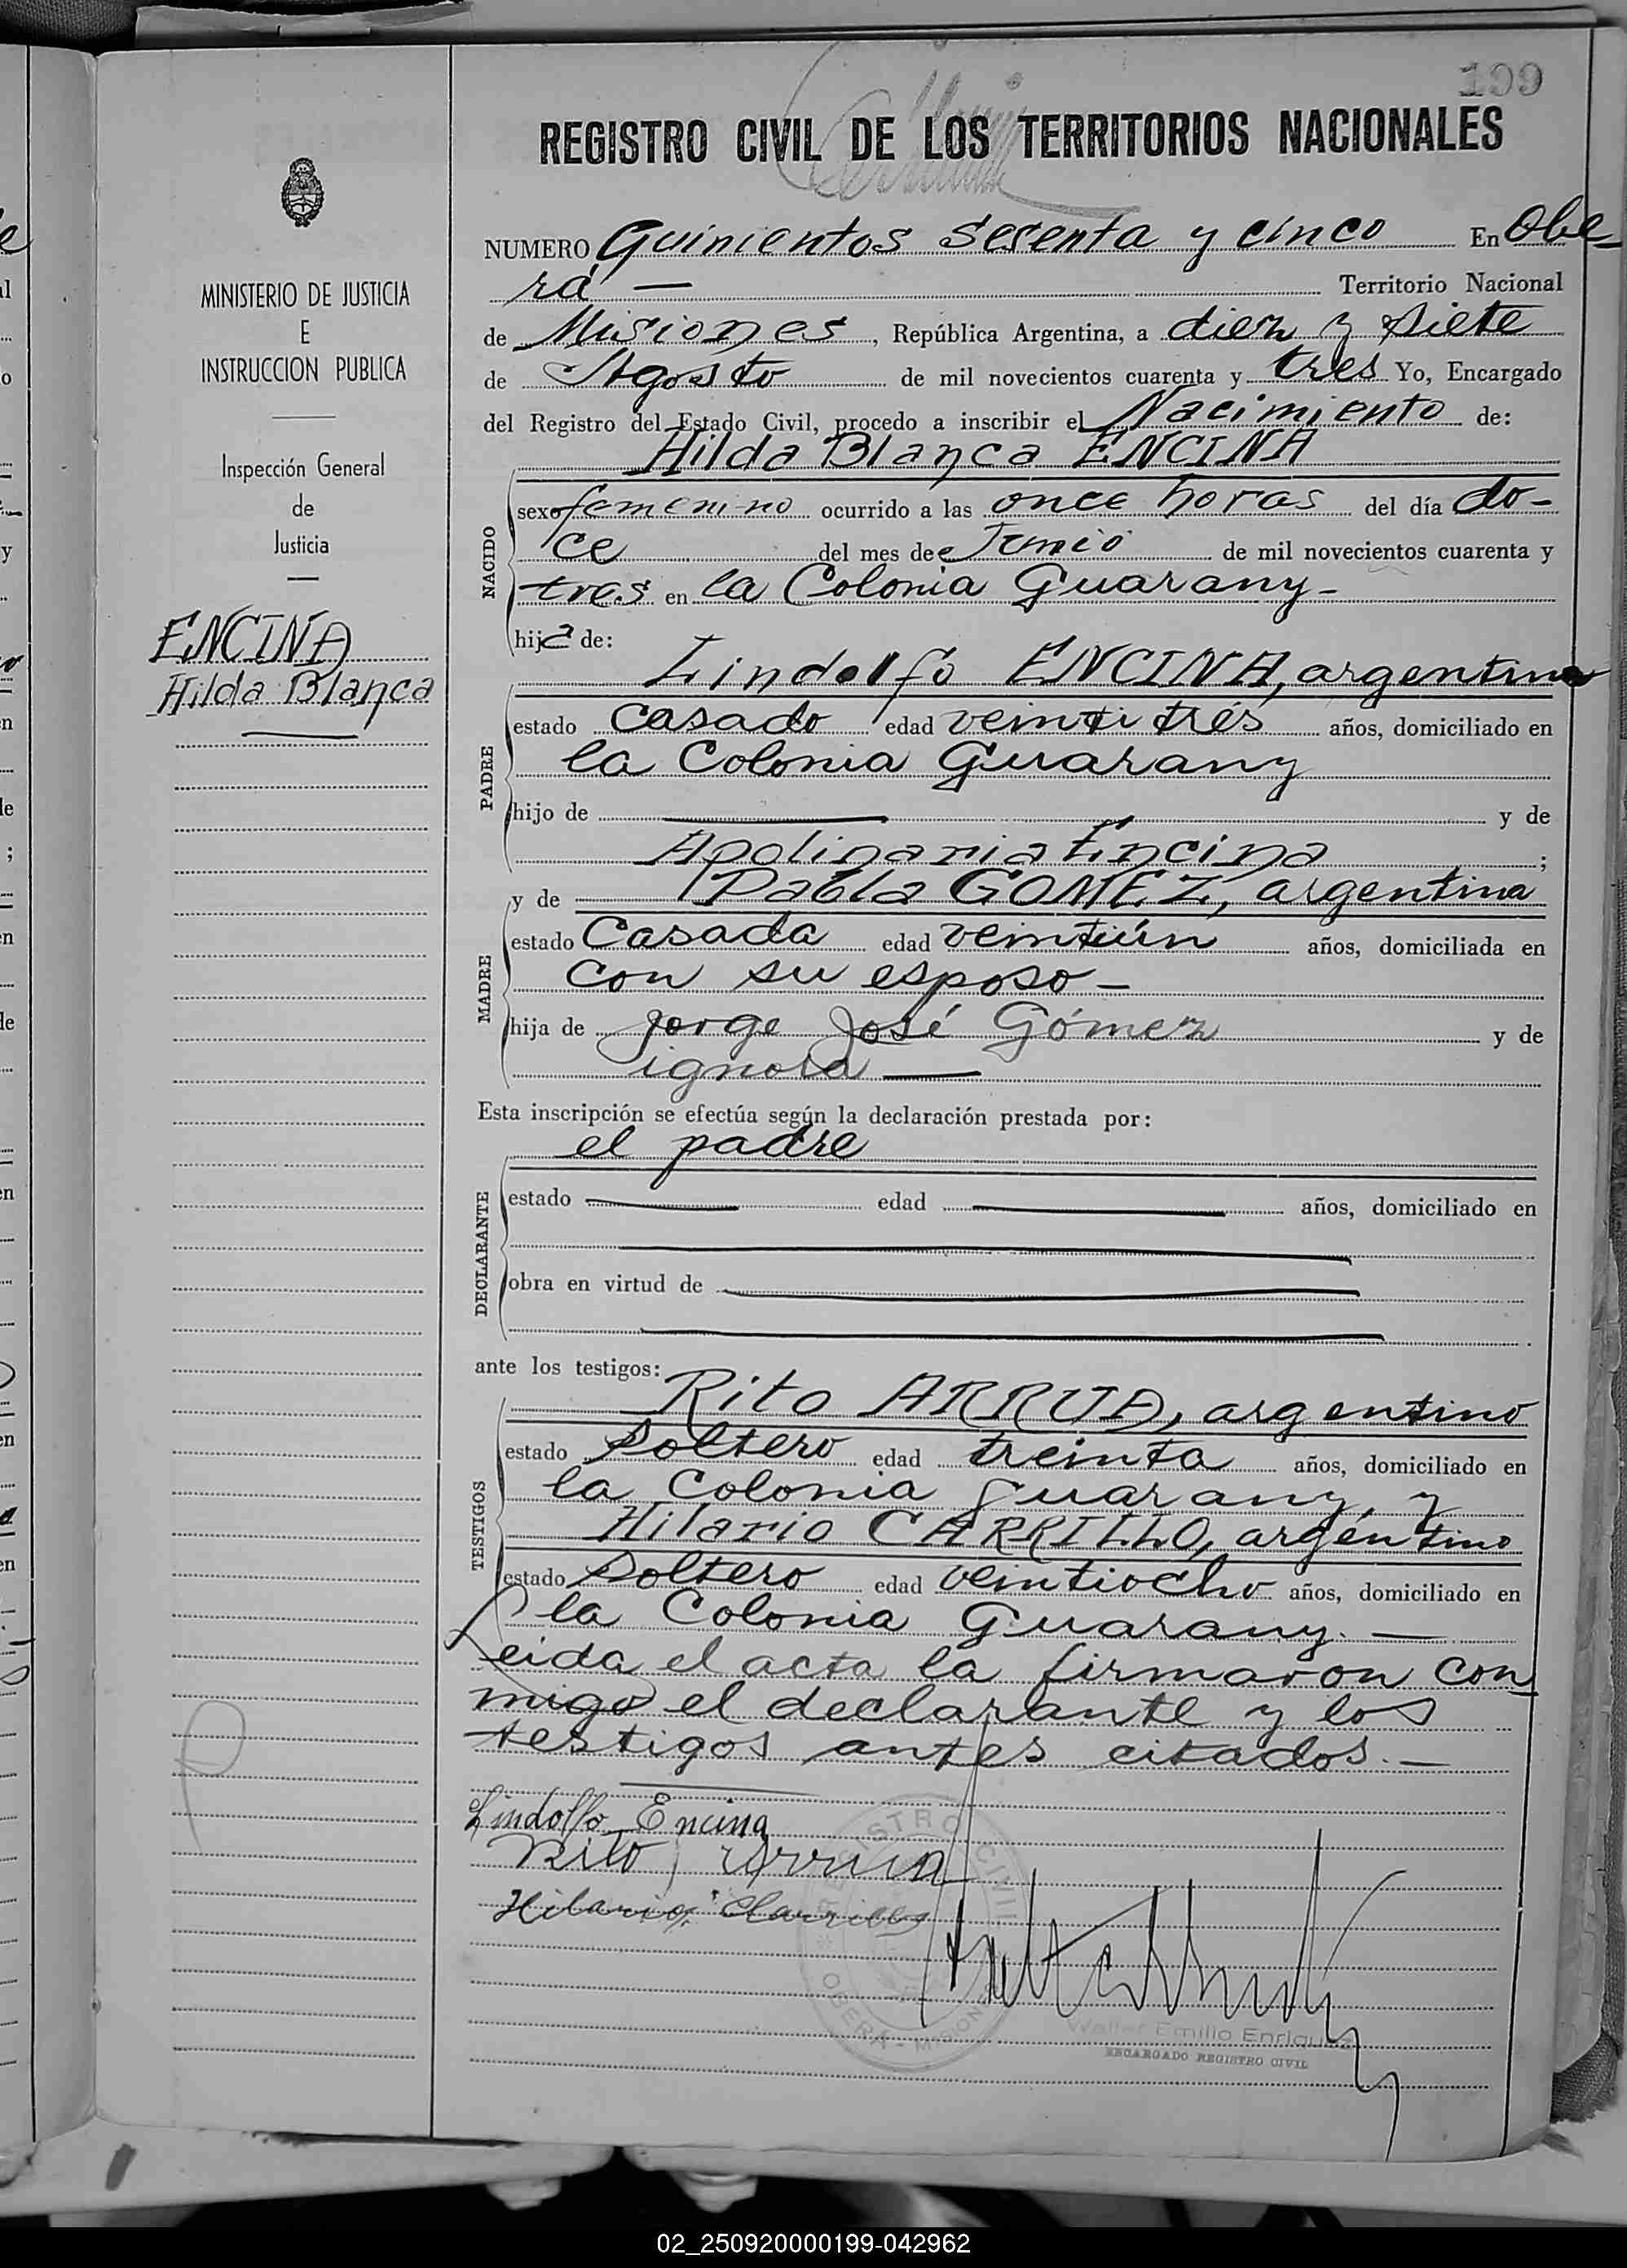 199
REGISTRO CIVIL DE LOS TERRITORIOS NACIONALES
MINISTERIO DE JUSTICIA
E
INSTRUCCION PUBLICA
Inspección General
de
Justicia
ENCINA
Hilda Blanca
NUMERO Quinientos Sesenta y cinco En Obe-
rá — Territorio Nacional
de Misiones, República Argentina, a diez y siete
de Agosto de mil novecientos cuarenta y tres Yo, Encargado
del Registro del Estado Civil, procedo a inscribir el Nacimiento de:
Hilda Blanca ENCINA
NACIDO
sexo femenino ocurrido a las once horas del día do-
ce del mes de Junio de mil novecientos cuarenta y
tres en la Colonia Guarany-
hija de:
Lindolfo ENCINA, argentino
PADRE
estado casado edad veinti trés años, domiciliado en
la Colonia Guarany
hijo de — y de
Apolinaria Encina ;
MADRE
y de Pabla GOMEZ, argentina
estado Casada edad veintiún años, domiciliada en
con su esposo —
hija de Jorge José Gómez y de
ignora —
Esta inscripción se efectúa según la declaración prestada por:
el padre
DECLARANTE
estado — edad — años, domiciliado en
obra en virtud de —
ante los testigos:
Rito ARRUA, argentino
TESTIGOS
estado Soltero edad treinta años, domiciliado en
la Colonia Guarany, y
Hilario CARRILLO, argentino
estado Soltero edad veintiocho años, domiciliado en
la Colonia Guarany. —
Leida el acta la firmaron con
migo el declarante y los
testigos antes citados. —
Lindolfo Encina
Rito Arrua
Hilario Carrillo
REGISTRO CIVIL
OBERA - MISIONES
Walter Emilio Enriquez
ENCARGADO REGISTRO CIVIL
02_250920000199-042962